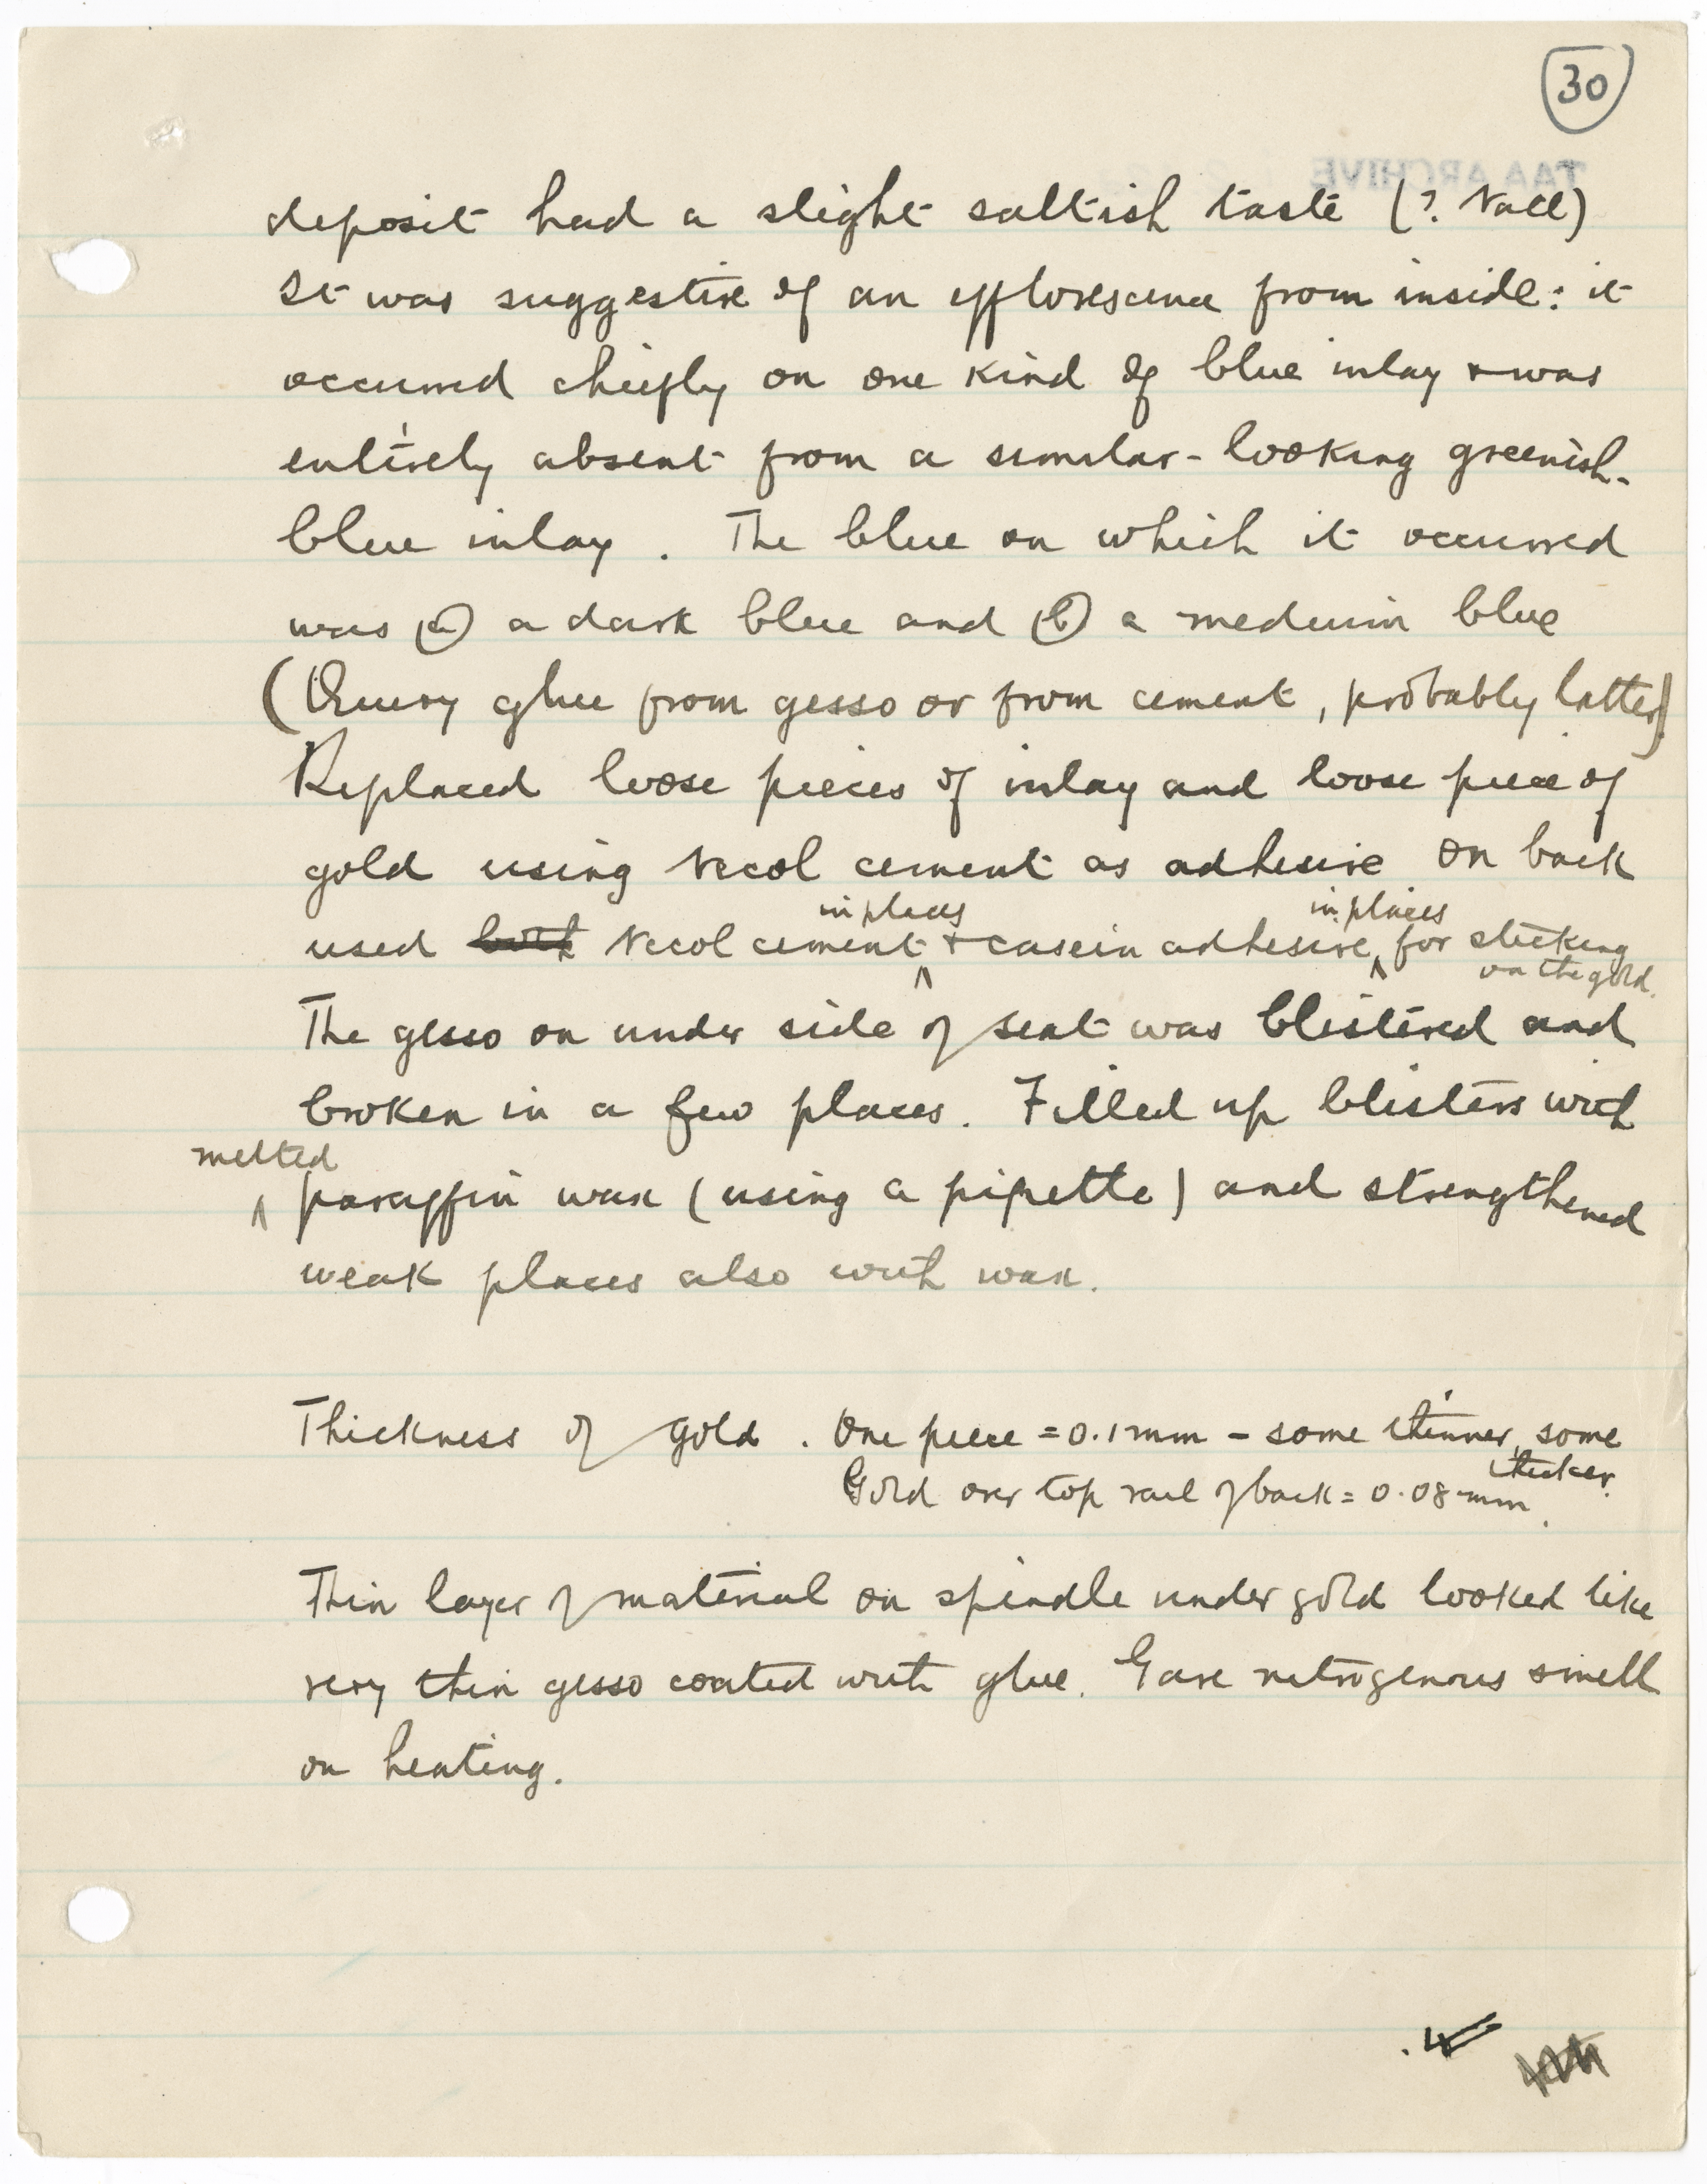 30
TAA ARCHIVE
deposit had a slight saltish taste (? NaCl)
It was suggestive of an efflorescence from inside: it
occurred chiefly on one kind of blue inlay & was
entirely absent from a similar-looking greenish-
blue inlay. The blue on which it occurred
was (a) a dark blue and (b) a medium blue
(Query glue from gesso or from cement, probably latter)
Replaced loose pieces of inlay and loose piece of
gold using Necol cement as adhesive On back
in places in places
used both Necol cement & casein adhesive for sticking
on the gold.
The gesso on under side of seat was blistered and
broken in a few places. Filled up blisters with
melted
paraffin wax (using a pipette) and strengthened
weak places also with wax.
Thickness of gold. One piece = 0.1 mm - some thinner, some
thicker.
Gold over top rail of back = 0.08 mm.
Thin layer of material on spindle under gold looked like
very thin gesso coated with glue. Gave nitrogenous smell
on heating.